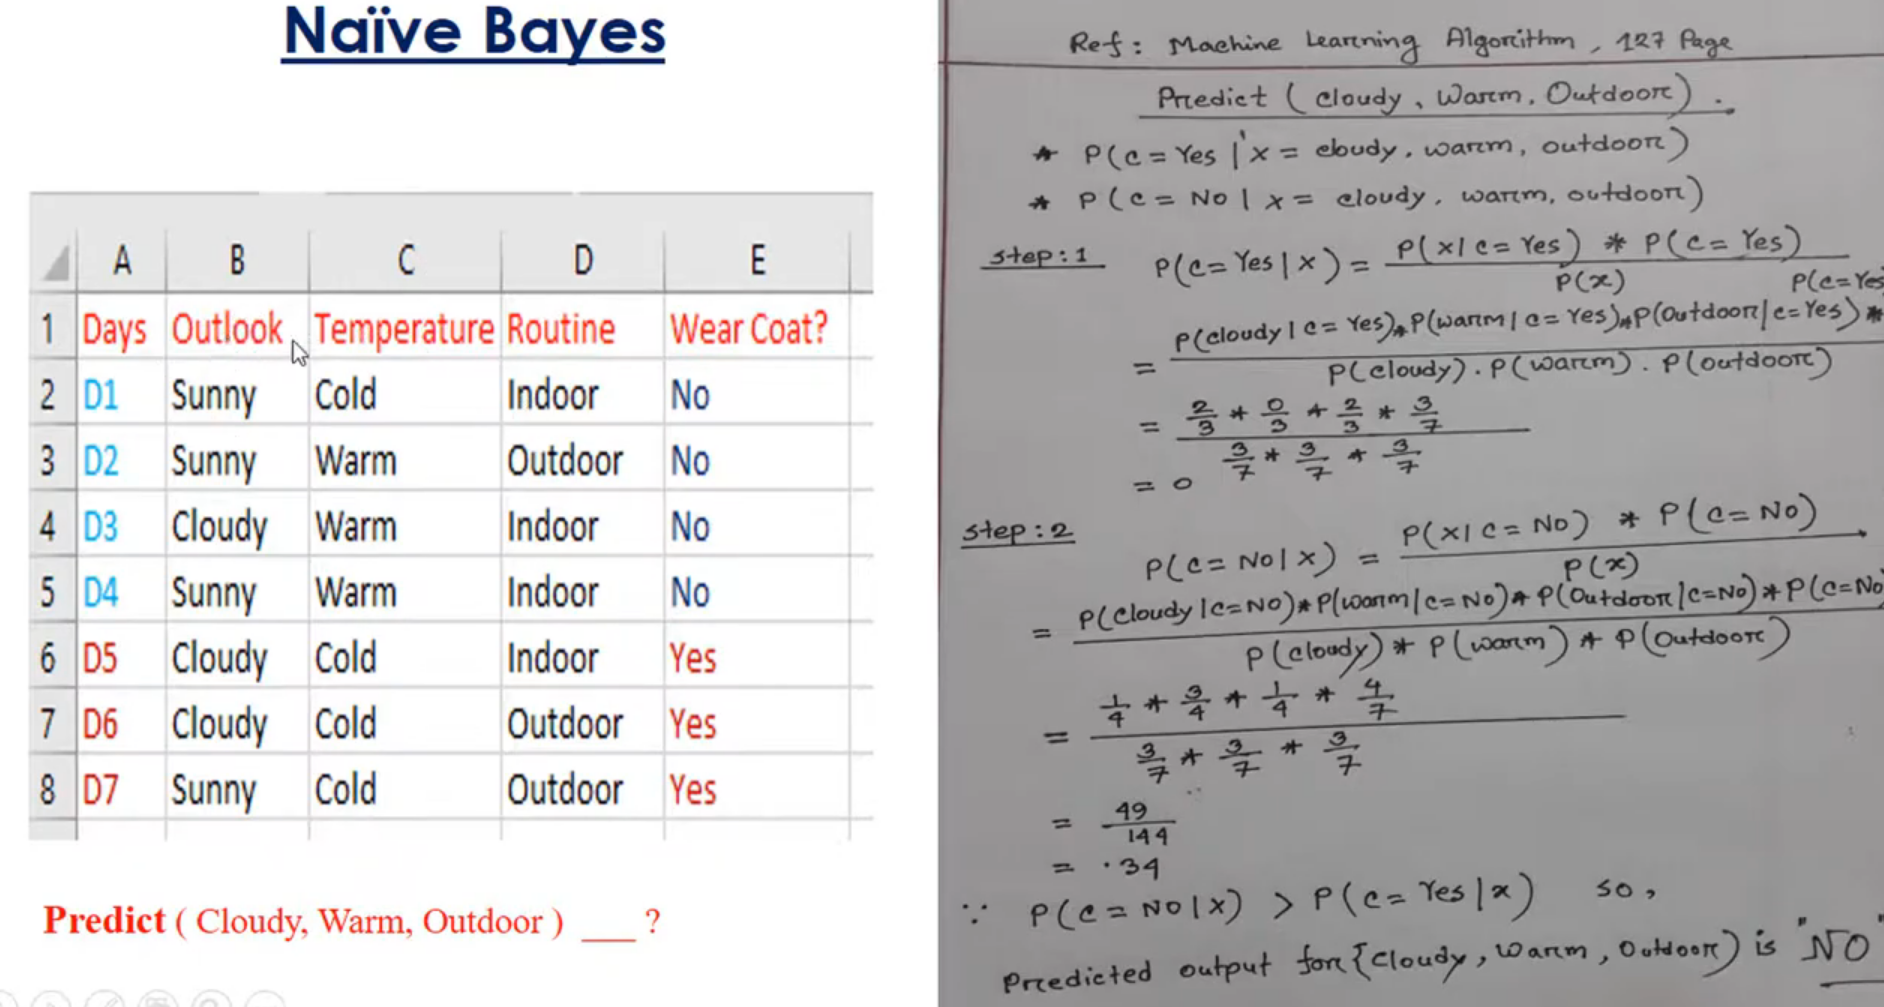 Naïve Bayes
A B C D E
1 Days Outlook Temperature Routine Wear Coat?
2 D1 Sunny Cold Indoor No
3 D2 Sunny Warm Outdoor No
4 D3 Cloudy Warm Indoor No
5 D4 Sunny Warm Indoor No
6 D5 Cloudy Cold Indoor Yes
7 D6 Cloudy Cold Outdoor Yes
8 D7 Sunny Cold Outdoor Yes
Predict ( Cloudy, Warm, Outdoor ) ___ ?
Ref: Machine Learning Algorithm, 127 Page
Predict ( cloudy, Warm, Outdoor ) .
* P(C = Yes | x = cloudy, warm, outdoor)
* P(C = No | x = cloudy, warm, outdoor)
Step:1 P(C=Yes|x) = P(x|C=Yes) * P(C=Yes)
P(x) P(C=Yes
= P(cloudy|C=Yes)*P(warm|C=Yes)*P(Outdoor|C=Yes)*
P(cloudy).P(warm).P(outdoor)
= 2/3 * 0/3 * 2/3 * 3/7
3/7 * 3/7 * 3/7
= 0
Step:2
P(C=No|x) = P(x|C=No) * P(C=No)
P(x)
= P(cloudy|C=No)*P(warm|C=No)*P(Outdoor|C=No)*P(C=No)
P(cloudy)*P(warm)*P(Outdoor)
= 1/4 * 3/4 * 1/4 * 4/7
3/7 * 3/7 * 3/7
= 49/144
= .34
∵ P(C=No|x) > P(C=Yes|x) so,
Predicted output for {cloudy, warm, Outdoor) is "NO"